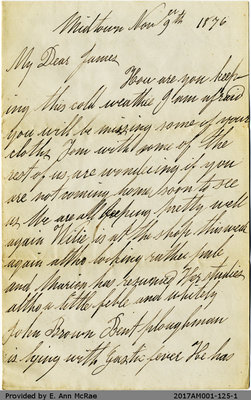 Midtown Nov 9th 1876
My Dear James
How are you keep-
ing this cold weather I am afraid
you will be missing some of your
cloths Tom with some of the
rest of us are wondering if you
are not coming home soon to see
us We are all keeping pretty well
again Willie is at the shop this week
again altho looking rather pale
and has resumed studies
altho a little feble and
John Brown Bent ploughman
is lying with Gastric fever He has
Provided by E. Ann McRae
2017AM001-125-1